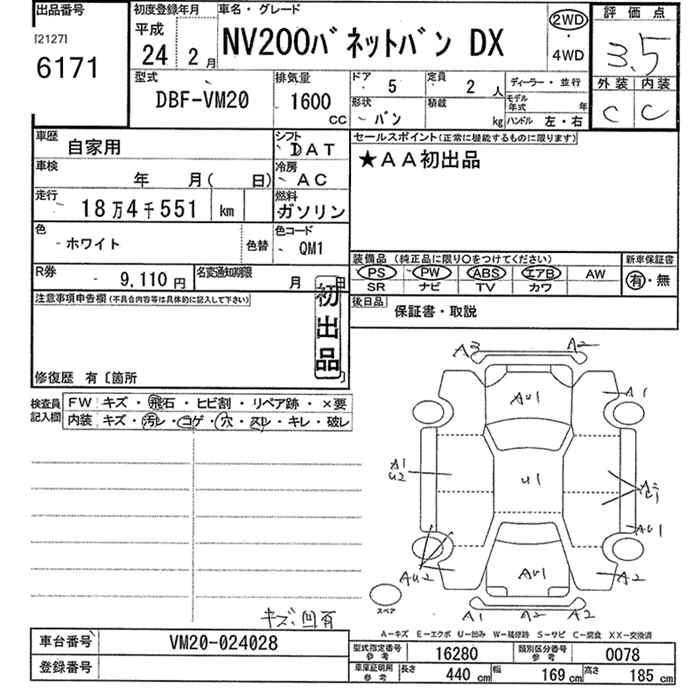 出品番号
[2127]
6171
初度登録年月
平成
24 2 月
車名・グレード
NV200バネットバン DX
2WD
・
4WD
評価点
3.5
外装 内装
C C
型式
DBF-VM20
排気量
1600 CC
ドア 5
定員 2 人
ディーラー・並行
形状 バン
積載 kg
モデル年式 年
ハンドル 左・右
車歴 自家用
シフト DAT
車検 年 月( 日)
冷房 AC
走行 18万4千551 km
燃料 ガソリン
色 ホワイト
色替
色コード QM1
R券 9,110 円
名変通知期限 月 日
セールスポイント(正常に機能するものに限ります)
★AA初出品
装備品 (純正品に限り○をつけてください)
新車保証書
PS PW ABS エアB AW
SR ナビ TV カワ
有・無
後日品 保証書・取説
注意事項申告欄(不具合内容等は具体的に記入して下さい)
初出品
修復歴 有〔箇所 〕
検査員記入欄
FW キズ・飛石・ヒビ割・リペア跡・×要
内装 キズ・汚レ・コゲ・穴・スレ・キレ・破レ
A3 A2
AU1 A1
A1
U2
U1
AU1
AU2 AU1 A2
スペア
A1 A2 A2
キズ凹有
A－キズ E－エクボ U－凹み W－補修跡 S－サビ C－腐食 XX－交換済
車台番号 VM20-024028
登録番号
型式指定番号 参考 16280
類別区分番号 参考 0078
車庫証明用 参考 長さ 440 cm 幅 169 cm 高さ 185 cm